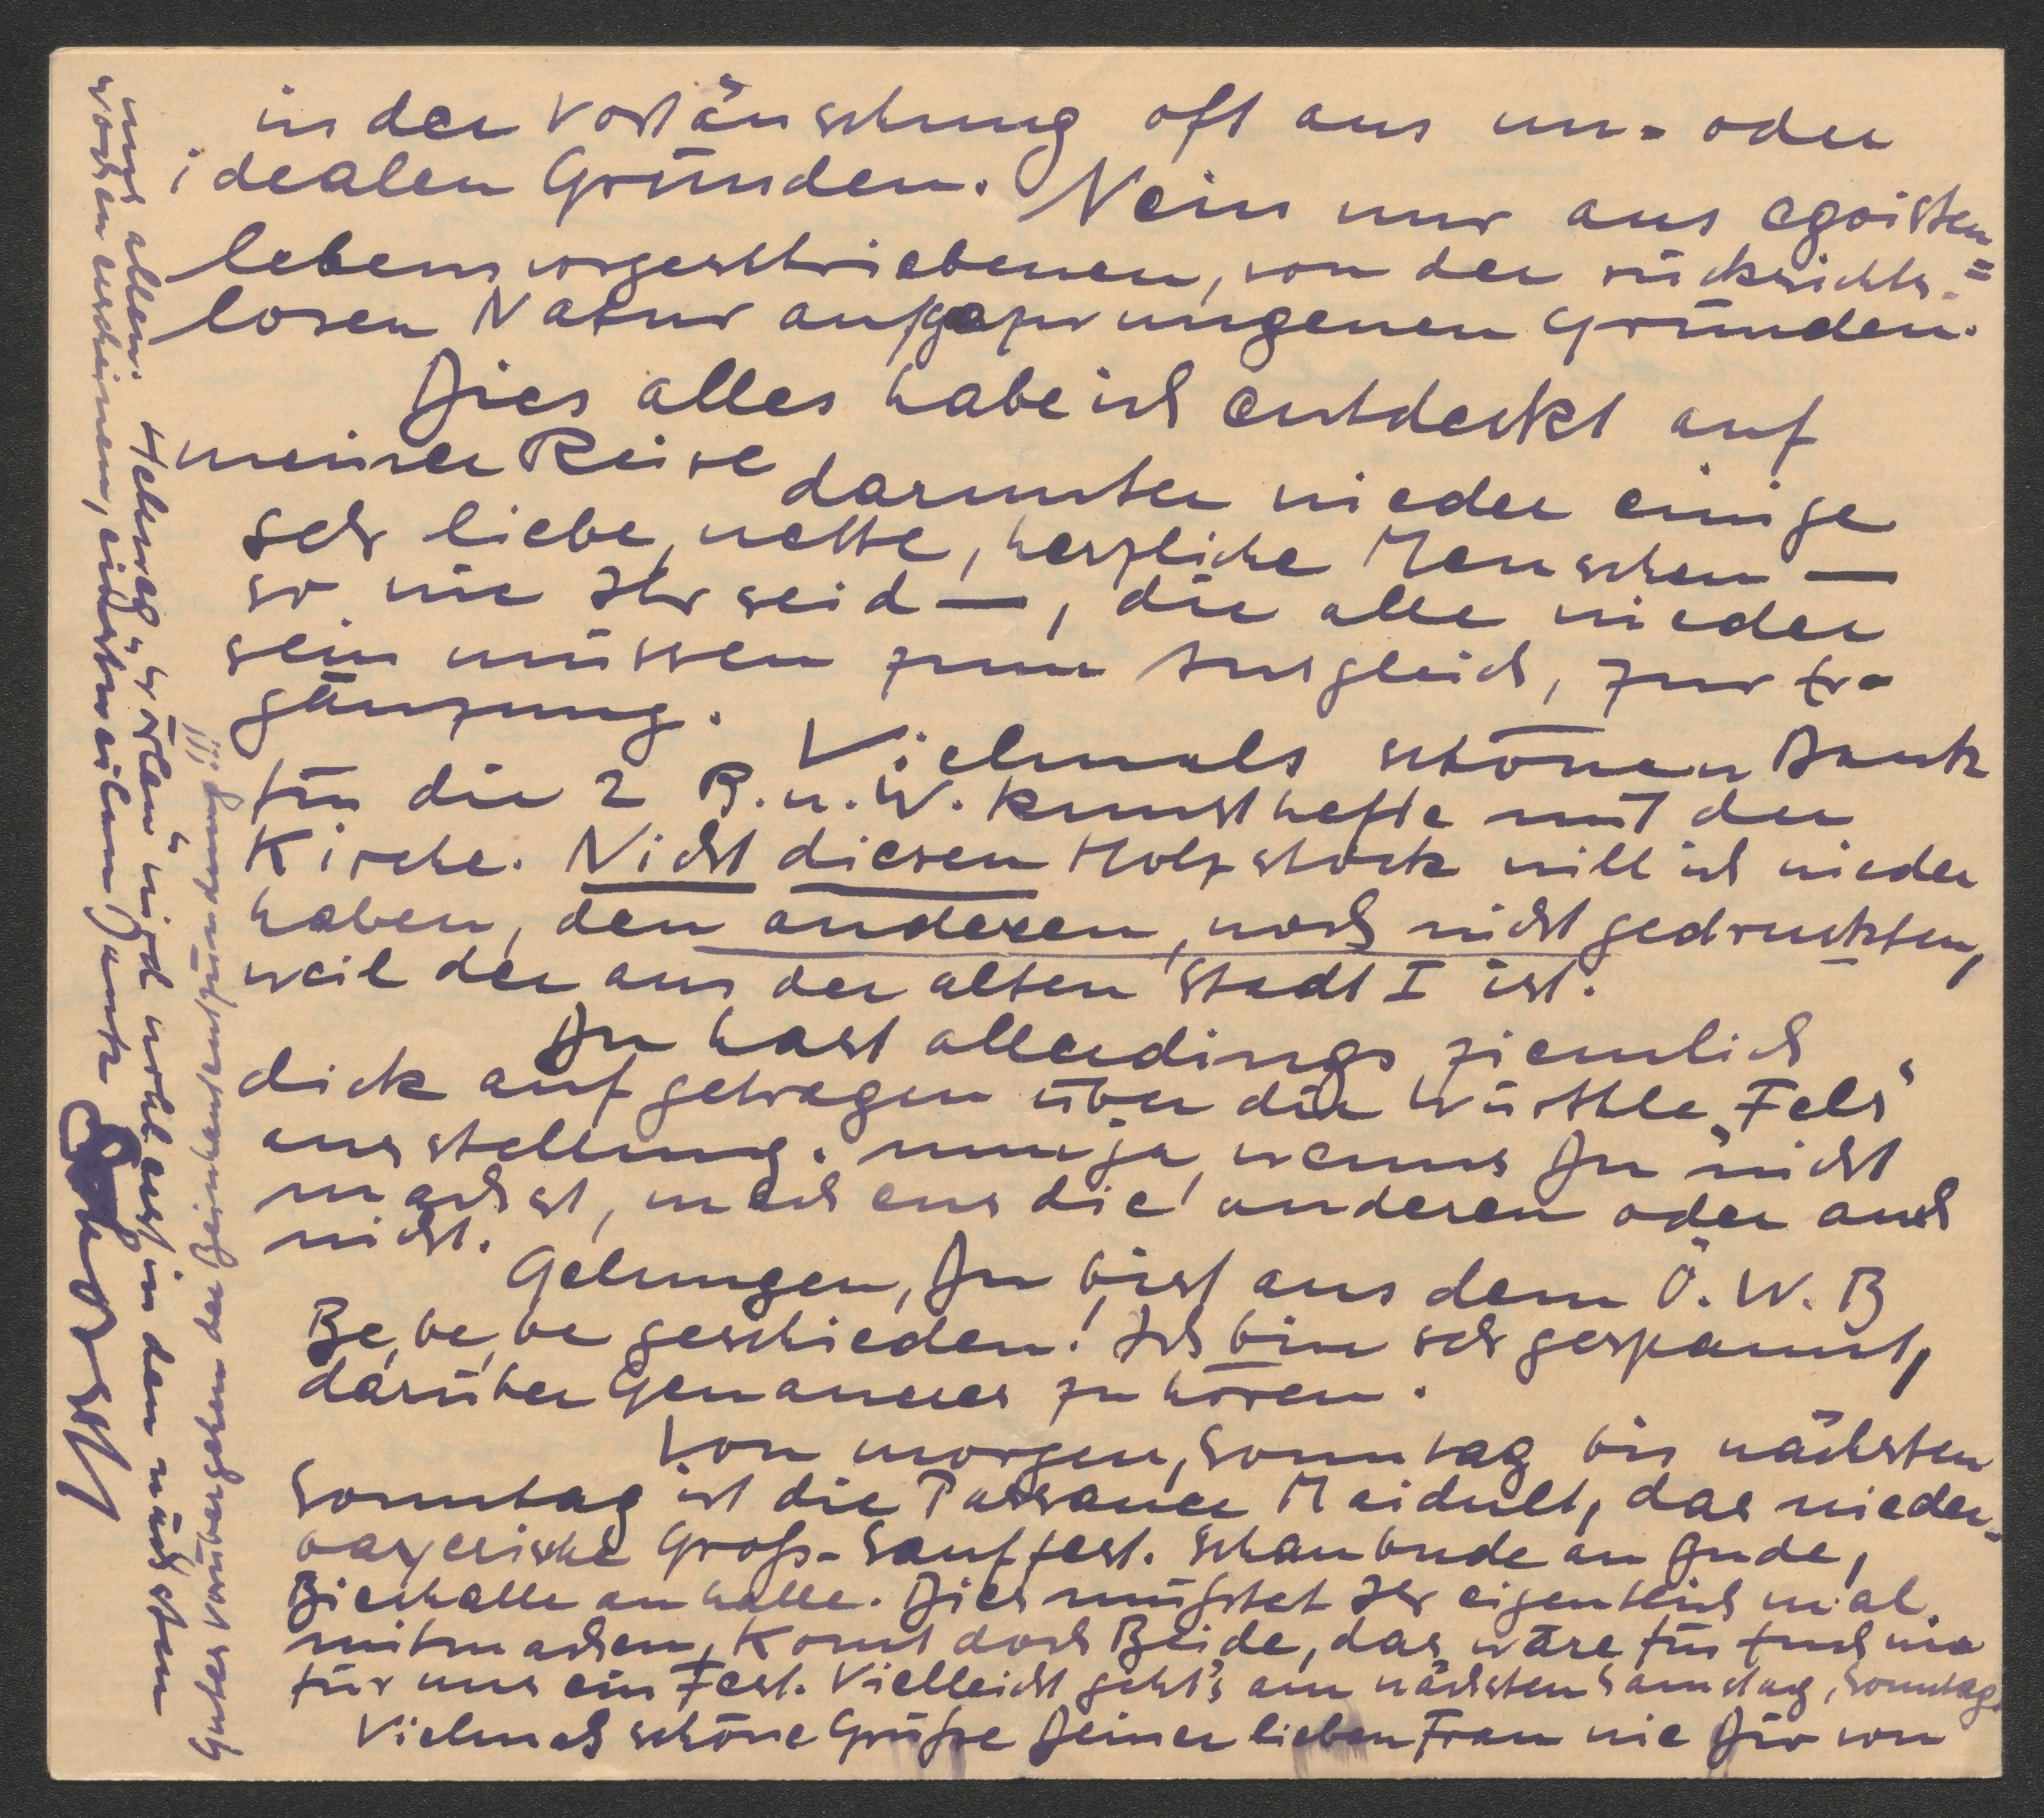 in der Vortäuschung oft aus un- oder
idealen Gründen. Nein nur aus egoisten=
lebensvorgeschriebenen, von der rücksichts-=
losen Natur aufgezwungenen Gründen.
Dies alles habe ich entdeckt auf
meiner Reise darunter wieder einige
sehr liebe, nette, herzliche Menschen —
so wie Ihr seid —, die alle wieder
sein müssen zum Ausgleich, zur Er-
gänzung. Vielmals schönen Dank
für die 2 B.u.W. Kunsthefte mit der
Kirche. Nicht diesen Holzstock will ich wieder
haben, den anderen, noch nicht gedruckten,
weil der aus der alten Stadt I ist.
Du hast allerdings ziemlich
dick aufgetragen über die Würthle „Fels“
ausstellung. nun ja, wenns Du nicht
machst, machens die anderen oder auch
nicht.
Gelungen, Du bist aus dem Ö.W.B
Be, be, be geschieden! Ich bin sehr gespannt,
darüber Genaueres zu hören.
Von morgen, Sonntag bis nächsten
Sonntag ist die Passauer Maidult, das nieder-
bayerische Groß-Sauffest. Schaubude an Bude,
Bierhalle an Halle. Dies müßtet Ihr eigentlich mal
mitmachen, Komt doch Beide, das wäre für Euch wie
für uns ein Fest. Vielleicht geht's am nächsten Samstag, Sonntag.
Vielmals schöne Grüße Deiner lieben Frau wie Dir von
uns allen. Heheweg „Wörlen“ wird wohl erst in den nächsten
Wochen erscheinen, einstweilen Dank
Gutes vorübergehen der